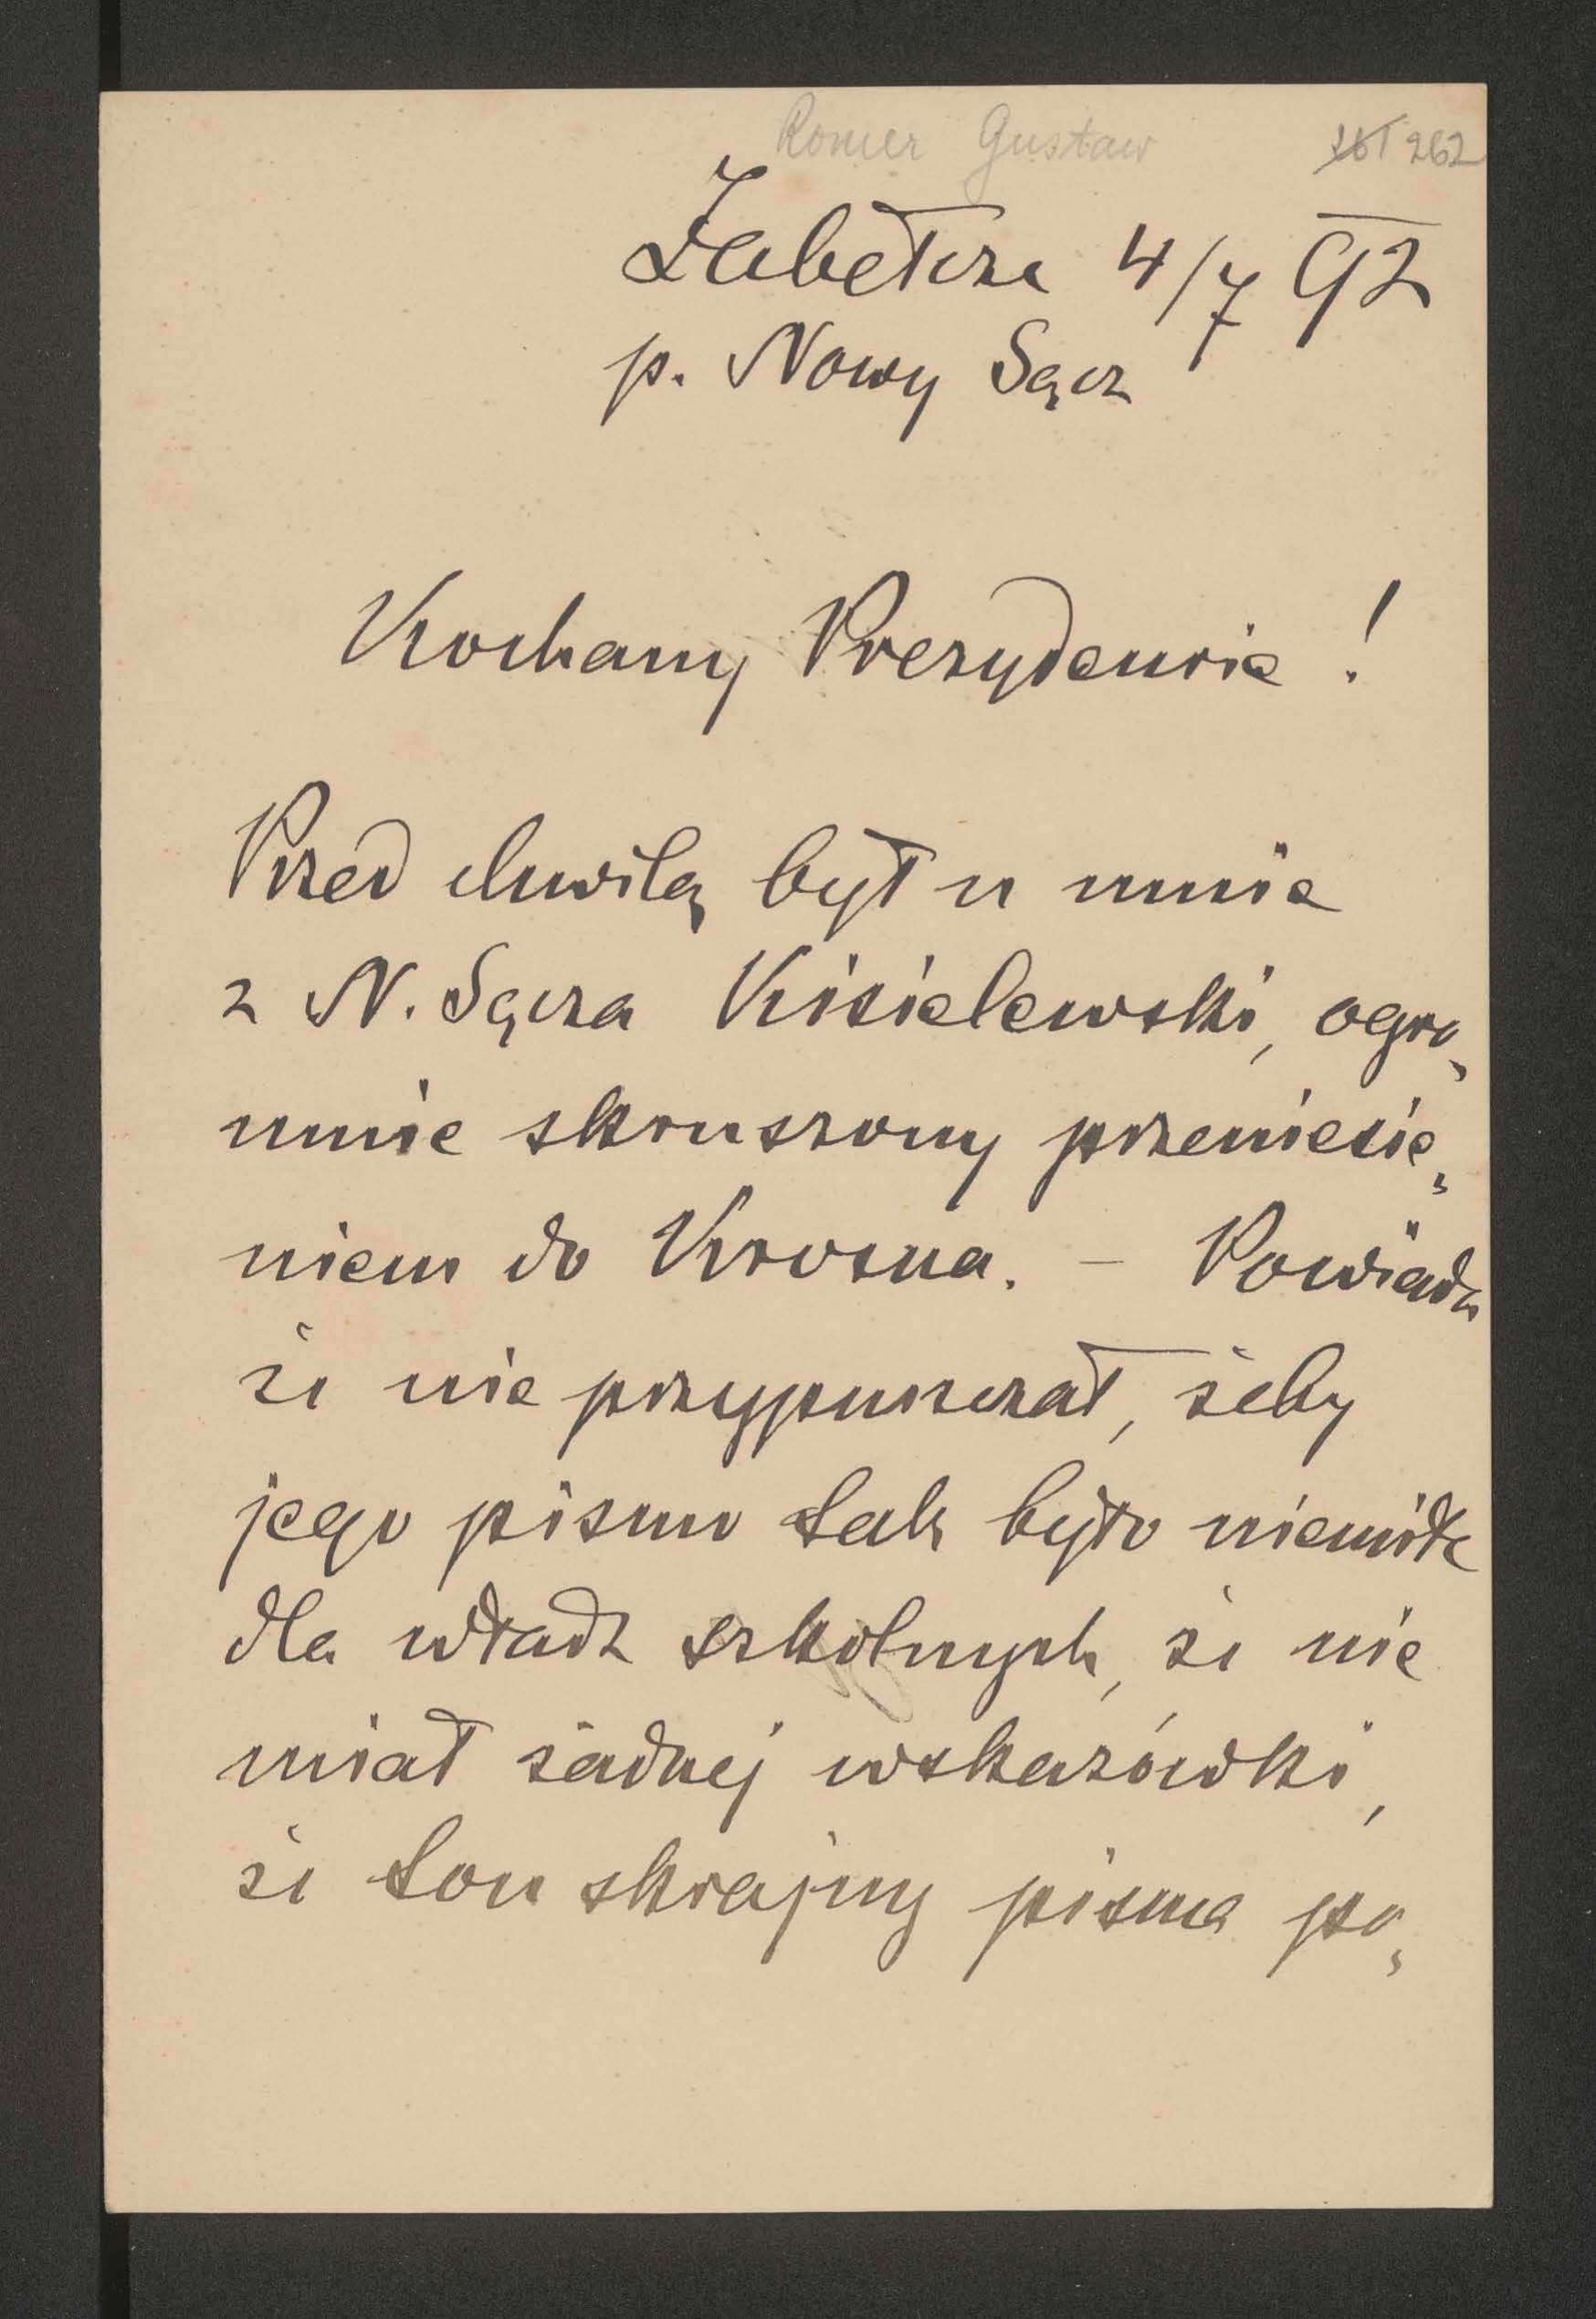 Romer Gustaw 261 262
Zabełcze 4/7 92
p. Nowy Sącz
Kochany Prezydencie !
Przed chwilą był u mnie
z N. Sącza Kisielewski, ogro„
mnie skruszony przeniesie„
niem do Krosna. – Powiada
że nie przypuszczał, żeby
jego pismo tak było niemiłe
dla władz szkolnych, że nie
miał żadnej wskazówki,
że ton skrajny pisma po„